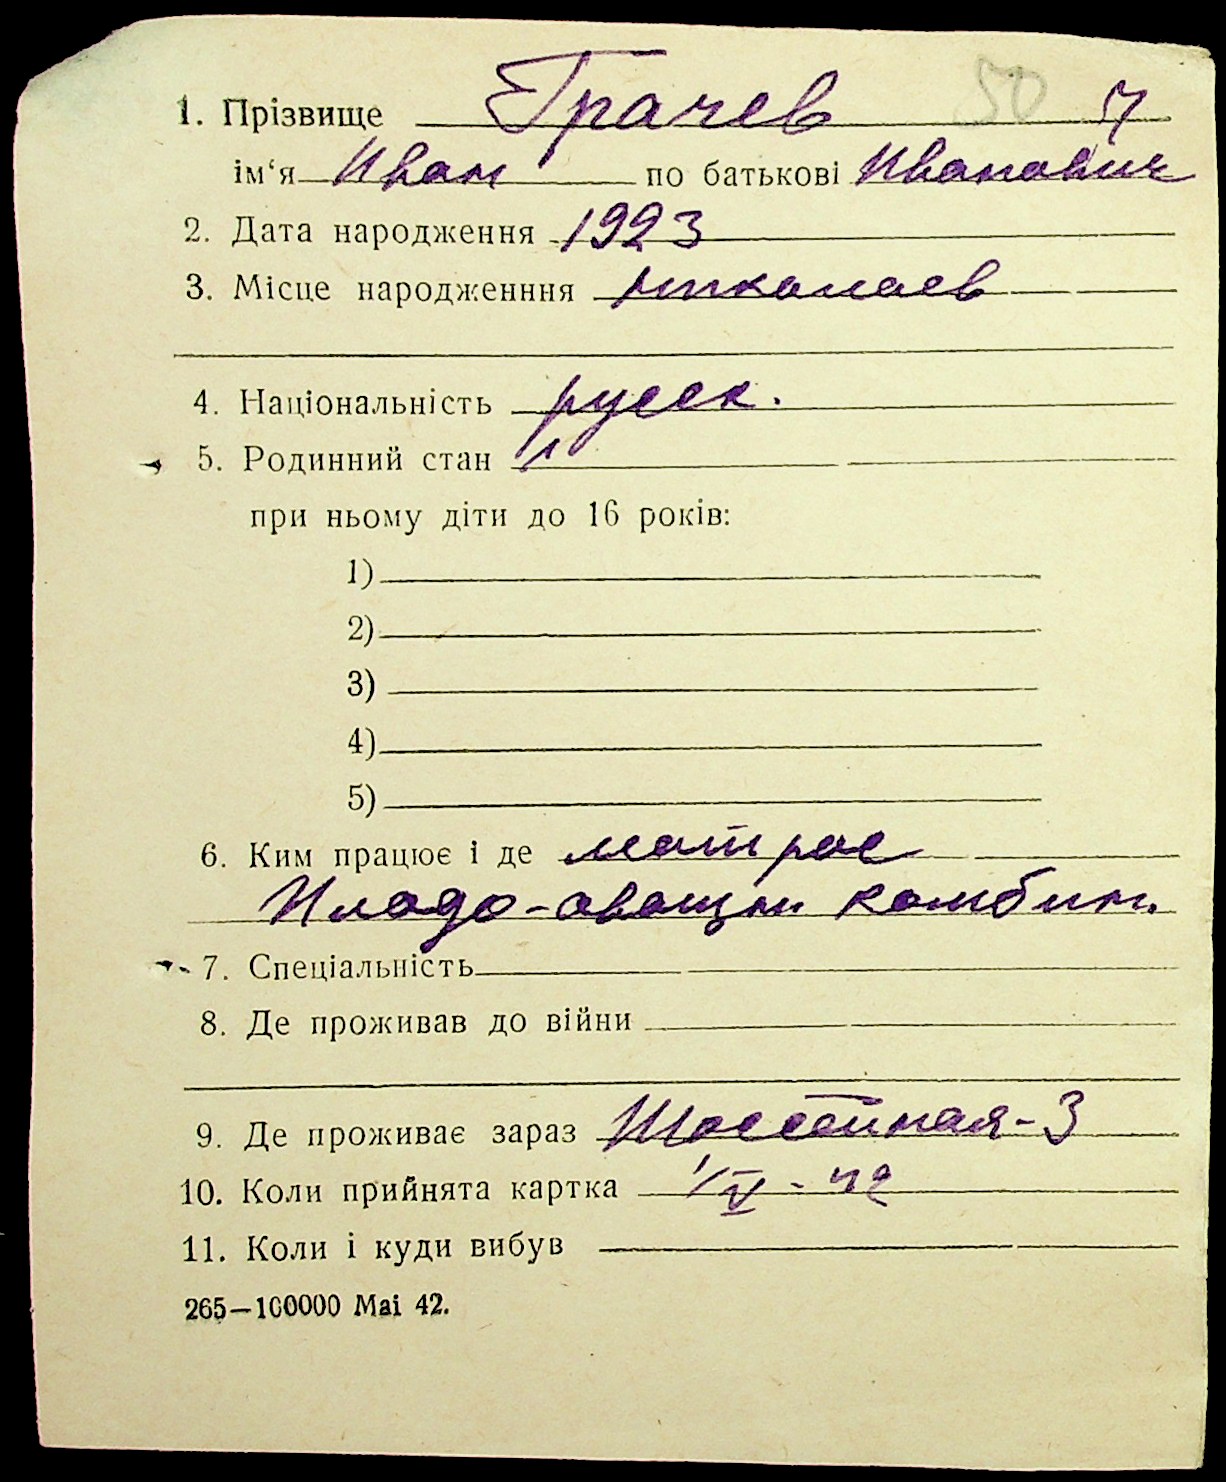 1. Прізвище Грачев 50
ім‘я Иван по батькові Иванович
2. Дата народження 1923
3. Місце народженння Николаев
4. Національність русск.
5. Родинний стан
при ньому діти до 16 років:
1)
2)
3)
4)
5)
6. Ким працює і де матрос
Плодо-овощн комбин.
7. Спеціальність
8. Де проживав до війни
9. Де проживає зараз Шоссейная-3
10. Коли прийнята картка 1/V - 42
11. Коли і куди вибув
265—100000 Mai 42.